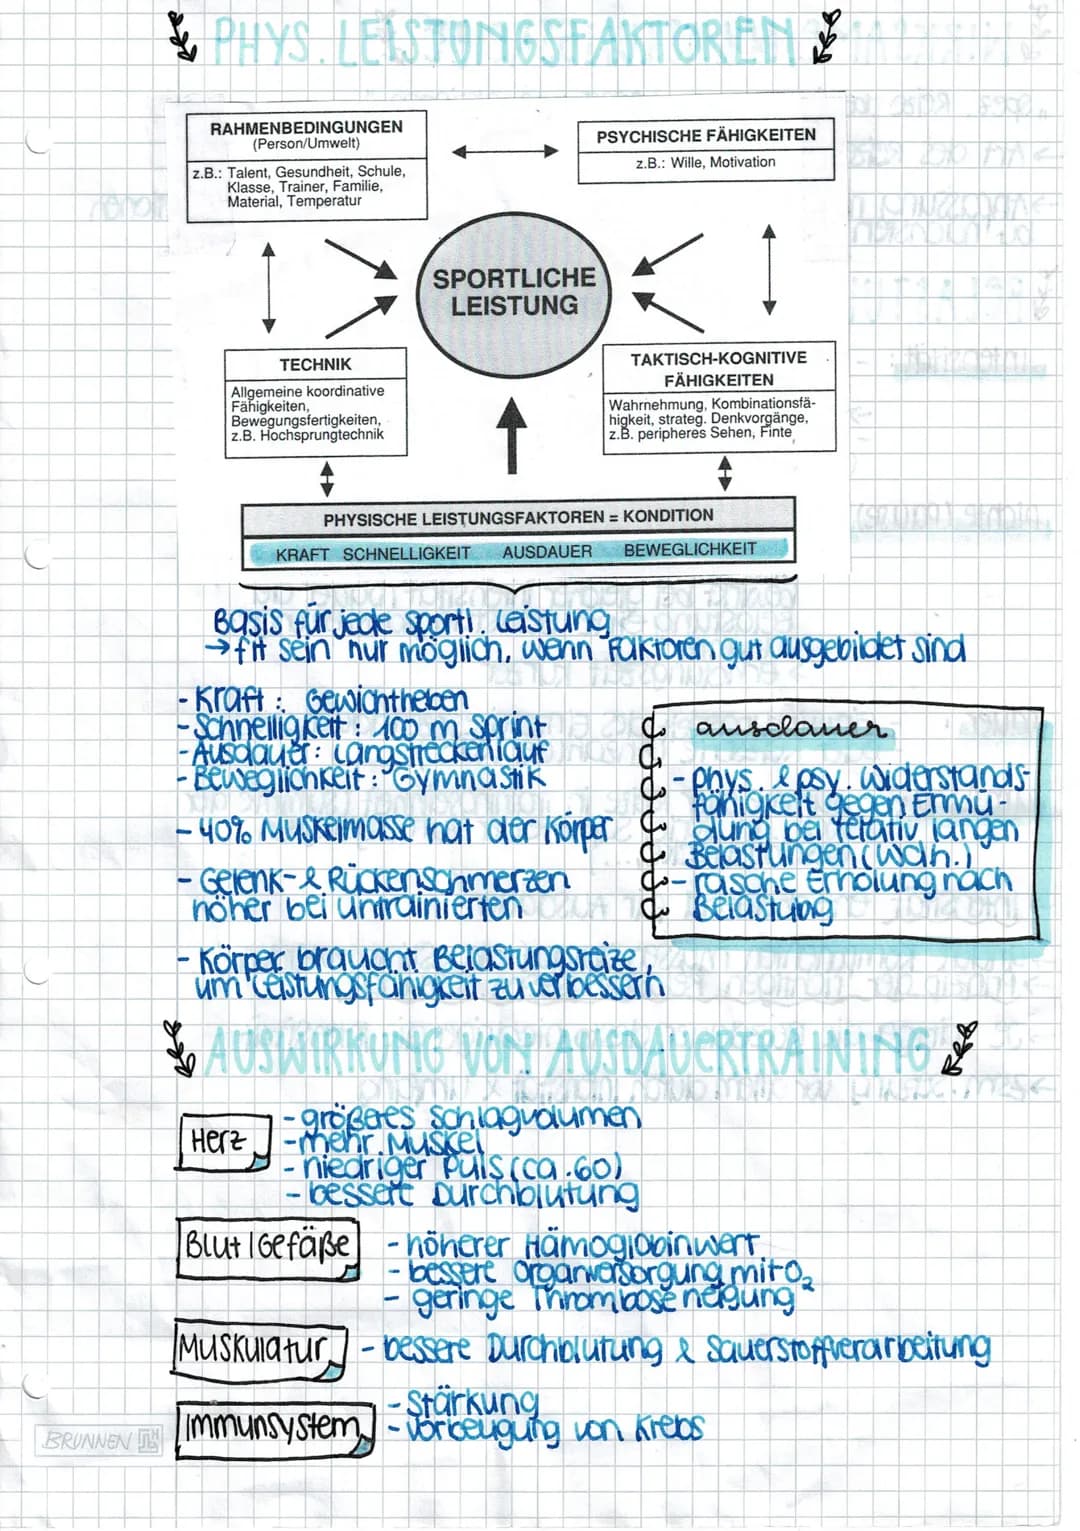 PHYS. LEISTUNGSFAKTOREN
RAHMENBEDINGUNGEN
(Person/Umwelt)
z.B.: Talent, Gesundheit, Schule,
Klasse, Trainer, Familie,
Material, Temperatur
PSYCHISCHE FÄHIGKEITEN
z.B.: Wille, Motivation
SPORTLICHE
LEISTUNG
TECHNIK
Allgemeine koordinative
Fähigkeiten,
Bewegungsfertigkeiten,
z.B. Hochsprungtechnik
TAKTISCH-KOGNITIVE
FÄHIGKEITEN
Wahrnehmung, Kombinationsfä-
higkeit, strateg. Denkvorgänge,
z.B. peripheres Sehen, Finte
PHYSISCHE LEISTUNGSFAKTOREN = KONDITION
KRAFT SCHNELLIGKEIT AUSDAUER BEWEGLICHKEIT
Basis für jede sportl. Leistung
→ fit sein nur möglich, wenn Faktoren gut ausgebildet sind
- Kraft: Gewichtheben
- Schnelligkeit: 100 m Sprint
- Ausdauer: Langstreckenlauf
- Beweglichkeit: Gymnastik
- 40% Muskelmasse hat der Körper
- Gelenk- & Rückenschmerzen
höher bei untrainierten
- Körper braucht Belastungsreize,
um Leistungsfähigkeit zu verbessern
ausdauer
- phys. & psy. Widerstands-
fähigkeit gegen Ermü-
dung bei relativ langen
Belastungen (wdh.)
- rasche Erholung nach
Belastung
AUSWIRKUNG VON AUSDAUERTRAINING
Herz
- größeres Schlagvolumen
- mehr Muskel
- niedriger Puls (ca. 60)
- bessere Durchblutung
Blut | Gefäße
- höherer Hämoglobinwert
- bessere Organversorgung mit O₂
- geringe Thromboseneigung
Muskulatur
- bessere Durchblutung & Sauerstoffverarbeitung
Immunsystem
- Stärkung
- Vorbeugung von Krebs
BRUNNEN